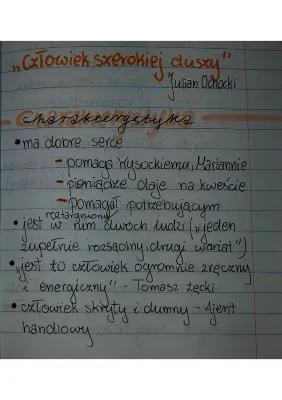 „Człowiek szerokiej duszy"
Julian Ochocki
Charakterystyka
• ma dobre serce
– pomaga Wysockiemu, Mariannie
– pieniądze daje na kweście
– pomagał potrzebującym
roztargniony
• jest w nim dwóch ludzi („jeden
zupełnie rozsądny, drugi wariat")
• „jest to człowiek ogromnie zręczny
i energiczny" - Tomasz Łęcki
• człowiek skryty i dumny - Ajent
handlowy